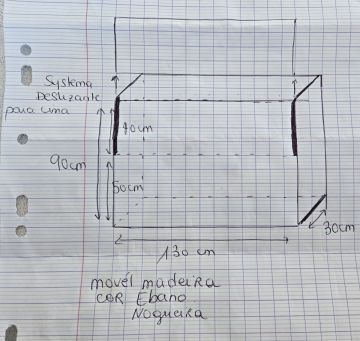 Systema
Deslizante
para cima
40cm
90cm
50cm
30cm
130 cm
movél madeira
COR Ebano
Nogueira